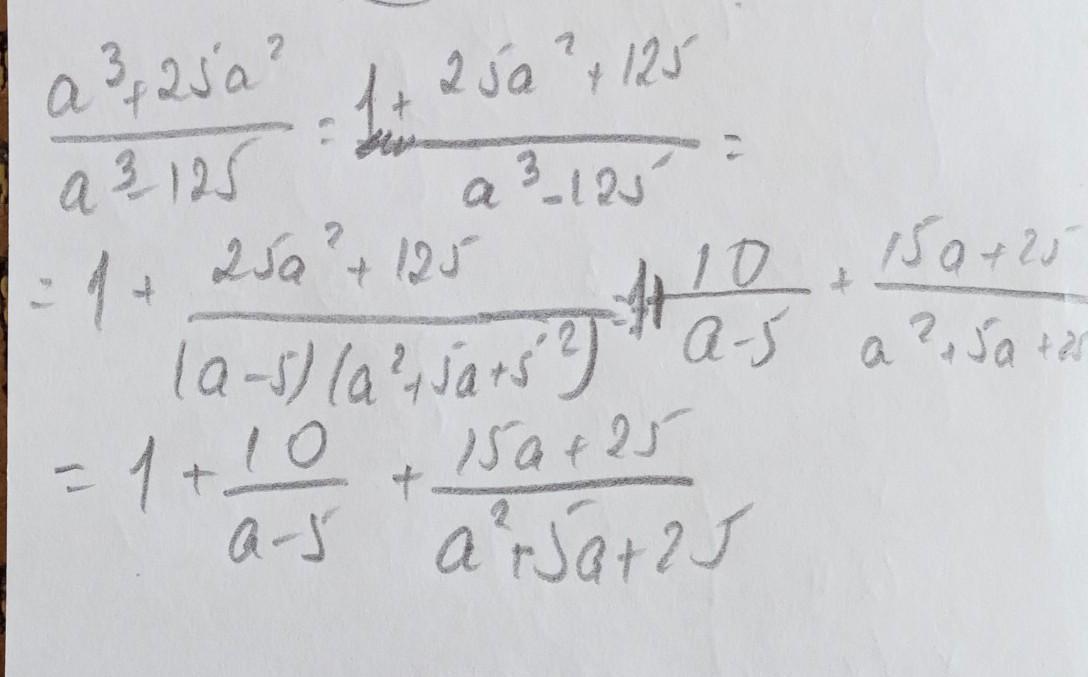 (a³+25a²)/(a³-125) = 1 + (25a²+125)/(a³-125) =
= 1 + (25a²+125)/((a-5)(a²+5a+5²)) = 1 + 10/(a-5) + (15a+25)/(a²+5a+25
= 1 + 10/(a-5) + (15a+25)/(a²+5a+25)